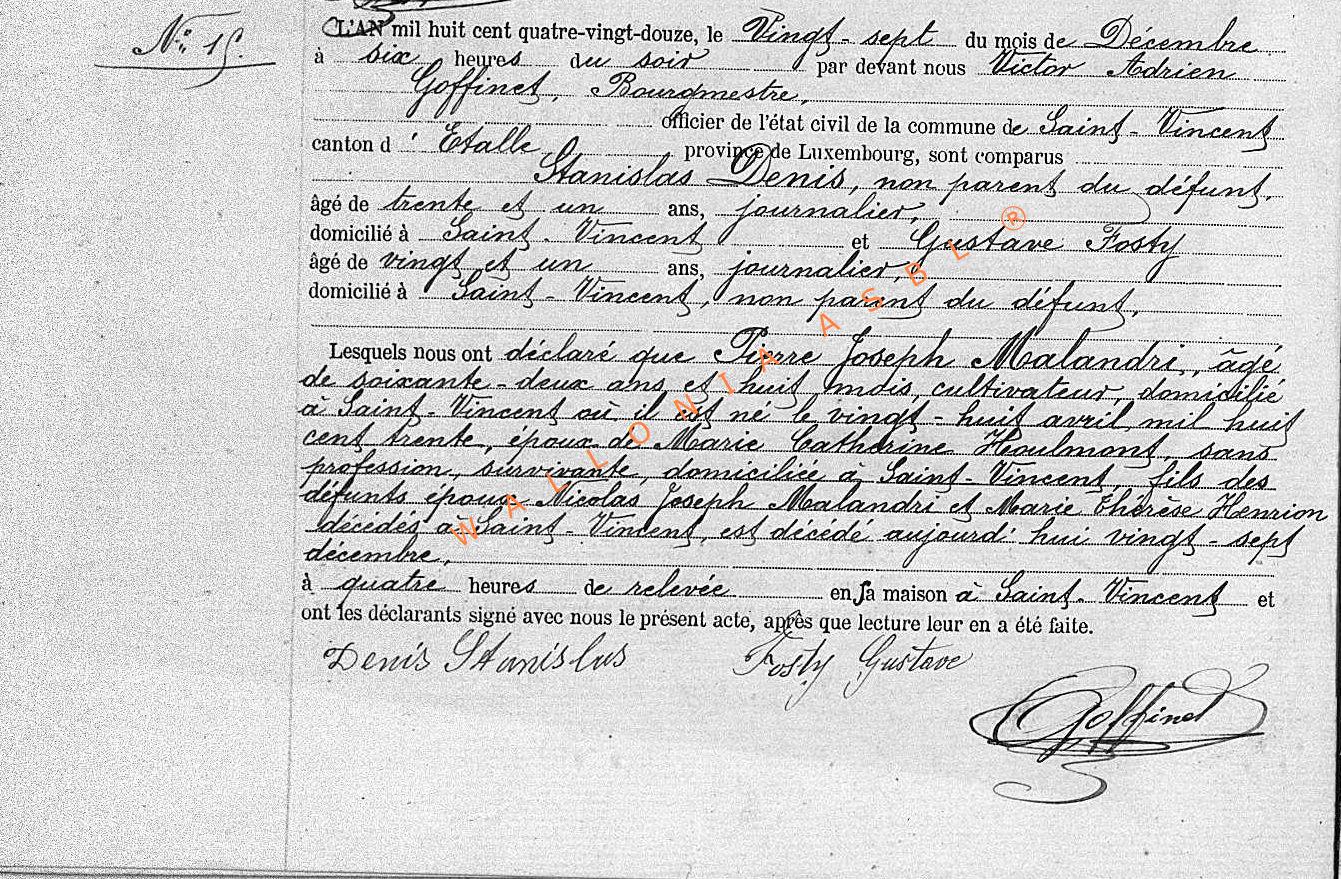 N° 15.
L'AN mil huit cent quatre-vingt-douze, le Vingt-sept du mois de Décembre
à six heures du soir par devant nous Victor Adrien
Goffinet, Bourgmestre,
officier de l'état civil de la commune de Saint-Vincent
canton d'Etalle province de Luxembourg, sont comparus
Stanislas Denis, non parent du défunt,
âgé de trente et un ans, journalier,
domicilié à Saint-Vincent et Gustave Fosty
âgé de vingt et un ans, journalier,
domicilié à Saint-Vincent, non parent du défunt,
Lesquels nous ont déclaré que Pierre Joseph Malandri, âgé
de soixante-deux ans et huit mois, cultivateur, domicilié
à Saint-Vincent où il est né le vingt-huit avril mil huit
cent trente, époux de Marie Catherine Houlmont, sans
profession, survivante, domiciliée à Saint-Vincent, fils des
défunts époux Nicolas Joseph Malandri et Marie Thérèse Henrion
décédés à Saint-Vincent, est décédé aujourd'hui vingt-sept
décembre,
à quatre heures de relevée en sa maison à Saint-Vincent et
ont les déclarants signé avec nous le présent acte, après que lecture leur en a été faite.
Denis Stanislas Fosty Gustave
Goffinet
WALLONIA ASBL ®